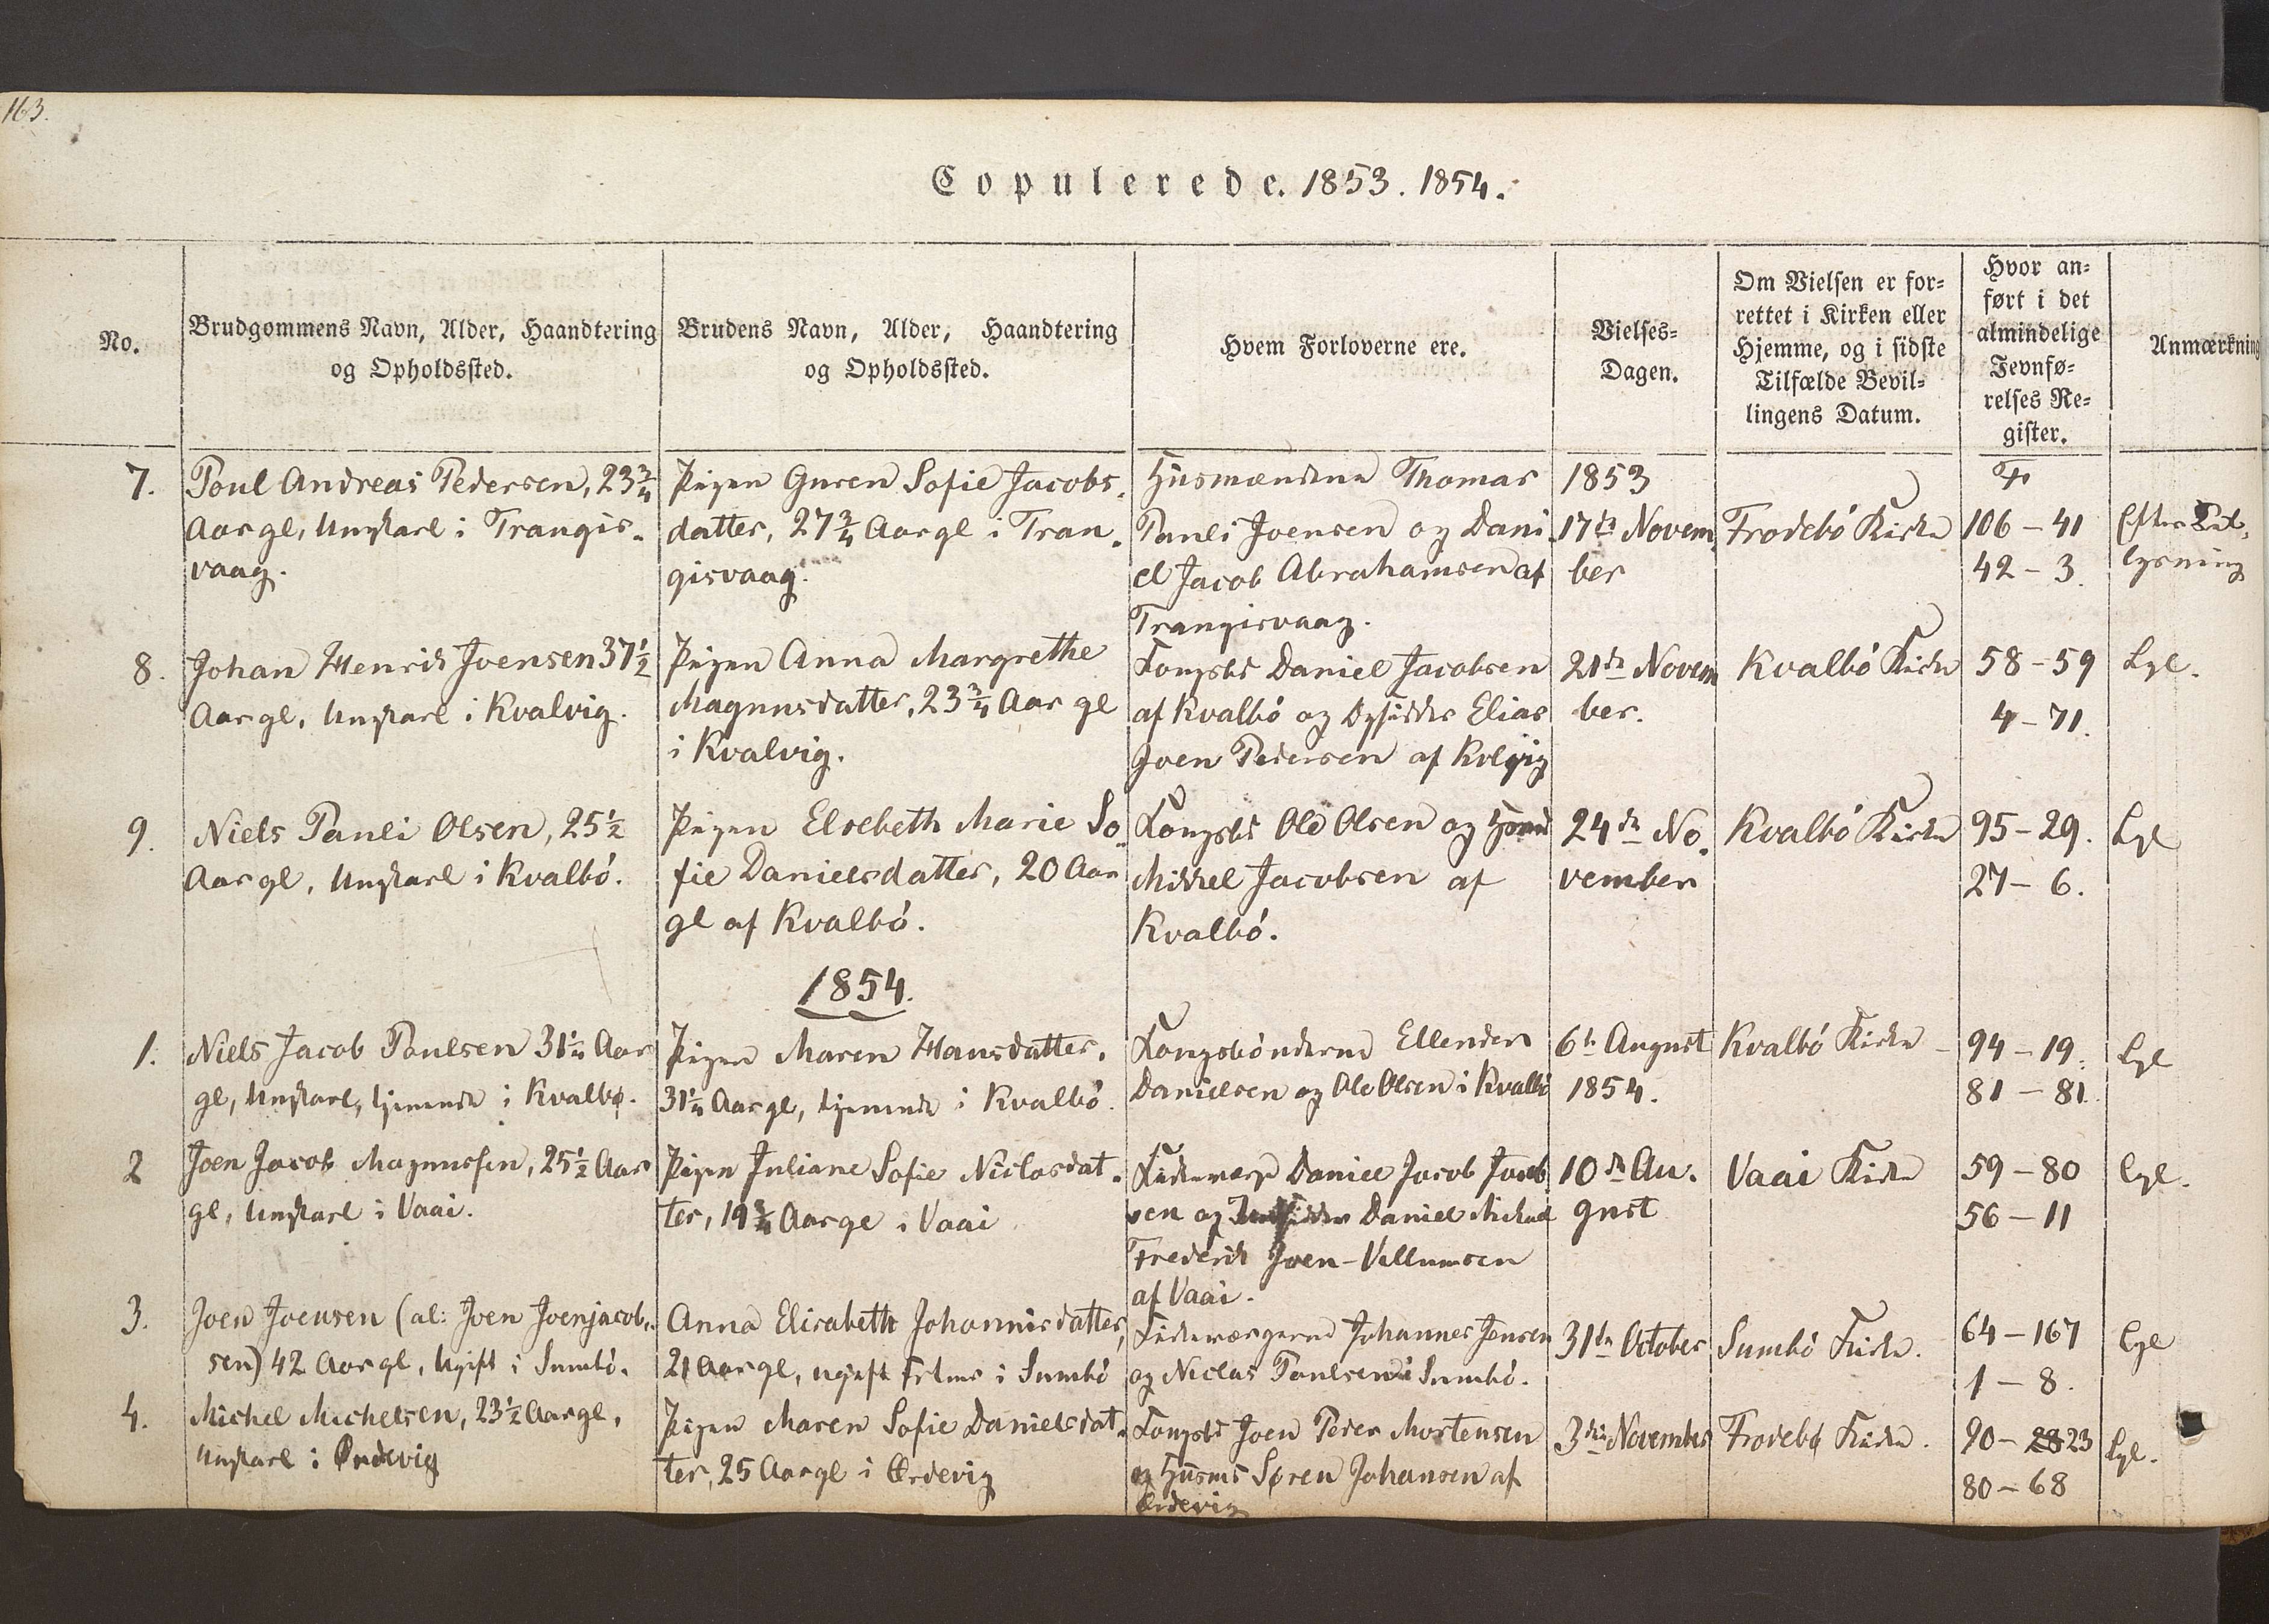 163.
Copulerede. 1853. 1854.
No.
Brudgommens Navn, Alder, Haandtering
og Opholdssted.
Brudens Navn, Alder, Haandtering
og Opholdssted.
Hvem Forloverne ere.
Vielses-
Dagen.
Om Vielsen er for-
rettet i Kirken eller
Hjemme, og i sidste
Tilfælde Bevil-
lingens Datum.
Hvor an-
ført i det
almindelige
Jevnfø-
relses Re-
gister.
Anmærkning
7.
Poul Andreas Pedersen, 23 3/4
Aar gl, Ungkarl i Trangis-
vaag.
Pigen Guren Sofie Jacobs-
datter, 27 3/4 Aar gl i Tran-
gisvaag.
Husmændene Thomas
Pauli Joensen og Dani
el Jacob Abrahamsen af
Trangisvaag.
1853
17de Novem
ber
Frodebó Kirke
106 - 41
42 - 3.
Efter Til-
lysning
8.
Johan Henrik Joensen 37 1/2
Aar gl, Ungkarl i Kvalvig.
Pigen Anna Margrethe
Magnusdatter, 23 3/4 Aar gl
i Kvalvig.
Kongsbd Daniel Jacobsen
af Kvalbó og Elias
Joen Pedersen af
21de Novem
ber.
Kvalbó Kirke
58 - 59
4 - 71.
Lgl.
9.
Niels Pauli Olsen, 25 1/2
Aar gl, Ungkarl i Kvalbó.
Pigen Elsebeth Marie So-
fie Danielsdatter, 20 Aar
gl af Kvalbó.
Kongsbd Ole Olsen og
Mikkel Jacobsen af
Kvalbó.
24de No-
vember
Kvalbó Kirke
95 - 29.
27 - 6.
Lgl
1854.
1.
Niels Jacob Poulsen 31 1/4 Aar
gl, Ungkarl, tjenende i Kvalbø.
Pigen Maren Hansdatter,
31 1/4 Aar gl, tjenende i Kvalbó.
Kongsbónderne Ellender
Danielsen og Ole Olsen i Kvalbó
6te August
1854.
Kvalbó Kirke
94 - 19.
81 - 81.
Lgl
2
Joen Jacob Magnussen, 25 1/2 Aar
gl, Ungkarl i Vaai.
Pigen Juliane Sofie Niclasdat-
ter, 19 3/4 Aar gl i Vaai
Daniel Jacob Jacob
sen og Daniel
Frederik Joen-Vellumsen
af Vaai.
10de Au-
gust
Vaai Kirke
59 - 80
56 - 11
Lgl.
3.
Joen Joensen (al: Joen Joenjacob-
sen) 42 Aar gl, Ugift i Sumbó.
Anna Elisabeth Johannisdatter,
21 Aar gl, ugift i Sumbó
Johannes Jensen
og Niclas Poulsen i Sumbó.
31te October
Sumbó Kirke.
64 - 167
1 - 8.
Lgl
4.
Michel Michelsen, 23 1/2 Aar gl,
Ungkarl i Ørdevig
Pigen Maren Sofie Danielsdat-
ter, 25 Aar gl i Ørdevig
Kongsbd Joen Peder Mortensen
og Husmd Søren Johansen af
Ørdevig
3die November
Frodebø Kirke.
90 - 28 23
80 - 68
Lgl.